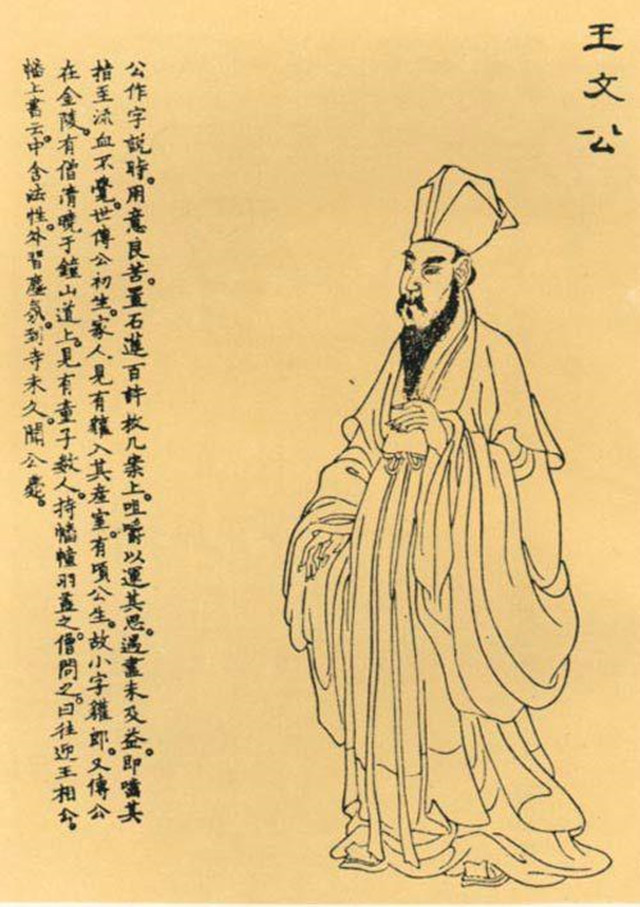 王文公
公作字說時。用意良苦。置石蓮百許枚几案上。咀嚼以運其思。遇盡未及益。即嚙其
指至流血不覺。世傳公初生。家人見有獾入其產室。有頃公生。故小字獾郎。又傳公
在金陵。有僧清曉于鐘山道上。見有童子數人。持幡幢羽蓋之。僧問之。曰往迎王相公。
幡上書云中含法性。外習塵氛。到寺未久。聞公薨。